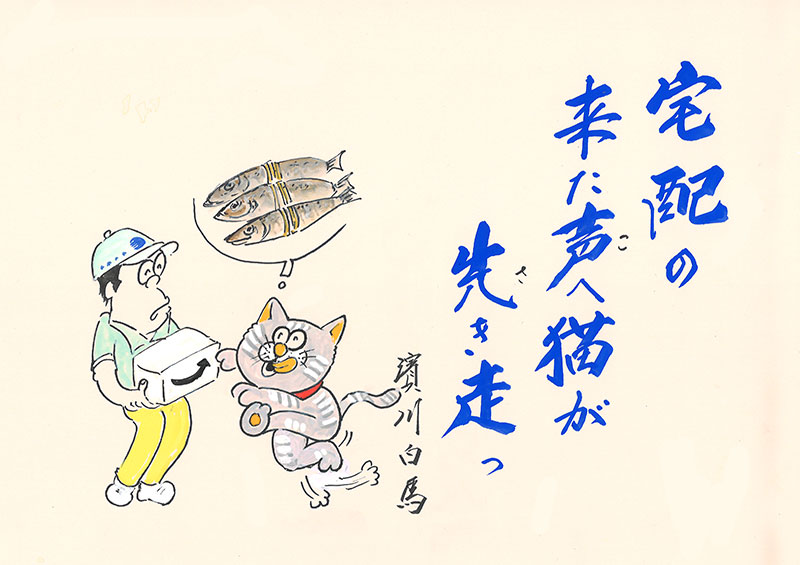 宅配の
来た声へ猫が
こ
先き走っ
さ
濱川白馬